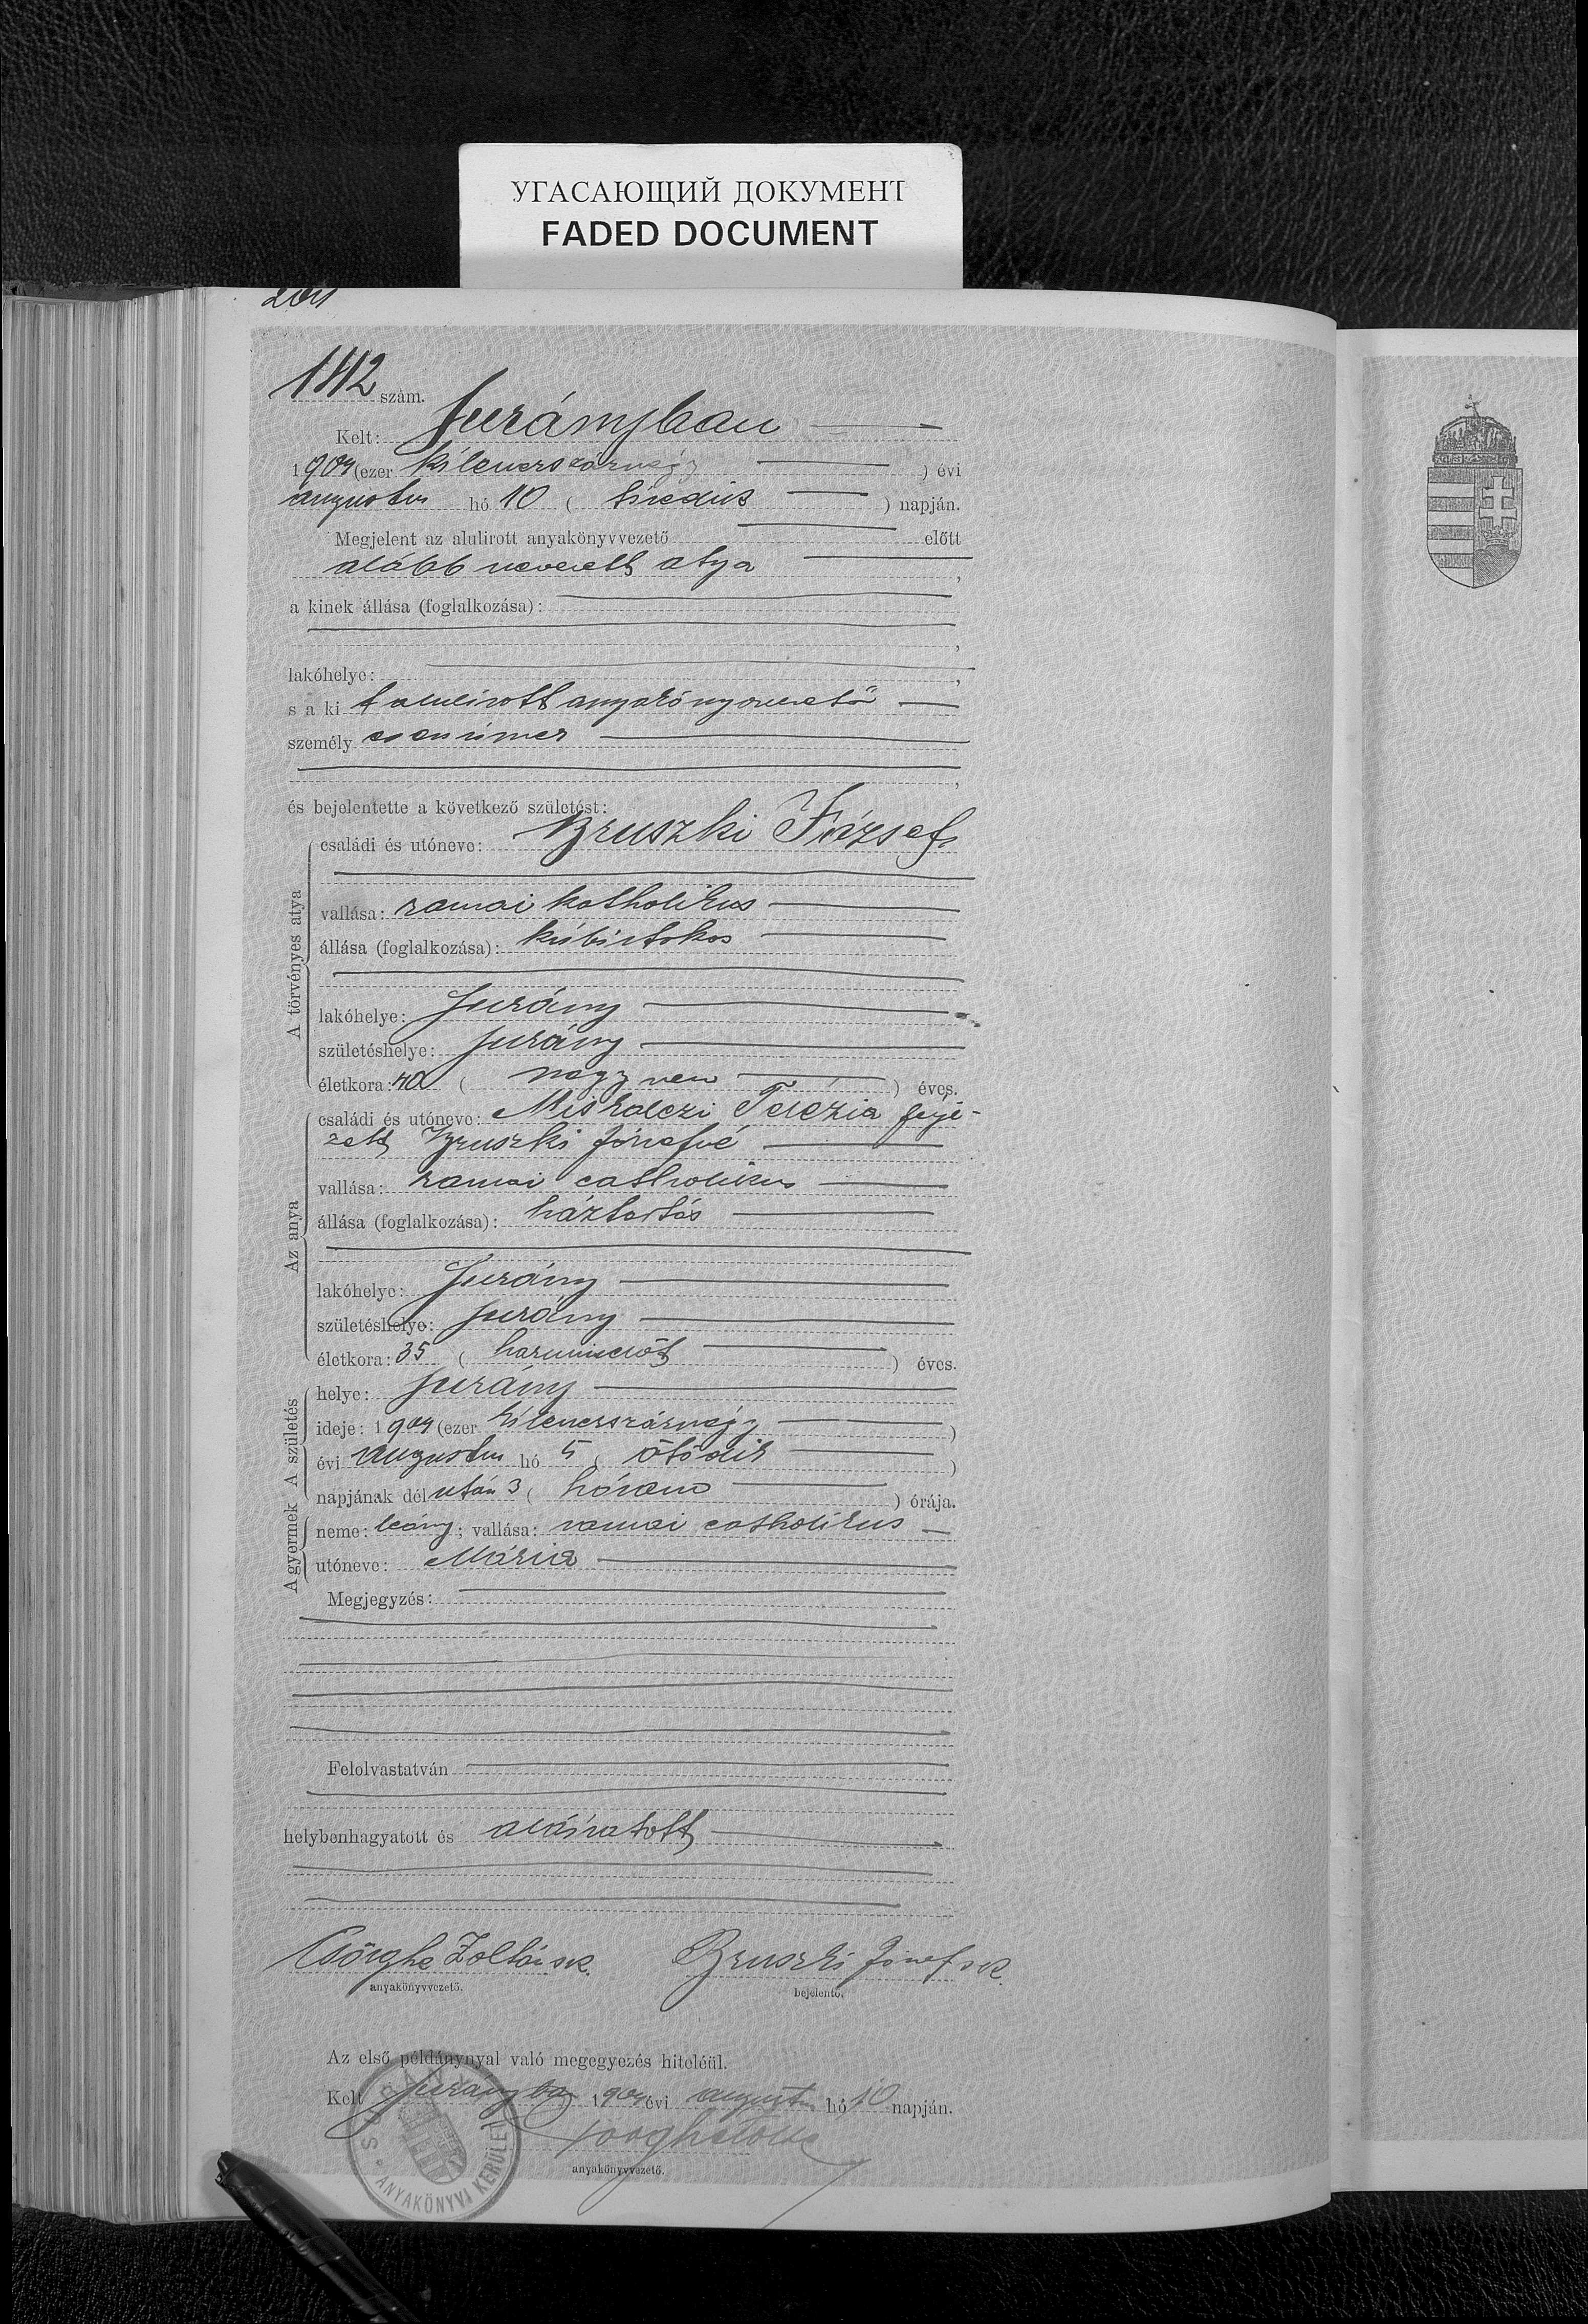 УГАСАЮЩИЙ ДОКУМЕНТ
FADED DOCUMENT
142 szám.
Kelt: Surányban
1904 (ezer kilencszáznégy ) évi
augustus hó 10 ( tizedik ) napján.
Megjelent az alulirott anyakönyvvezető előtt
alább nevezett atya ,
a kinek állása (foglalkozása):
,
lakóhelye: ,
s a ki alulirott anyakönyvvezető
személyesen ismer
,
és bejelentette a következő születést:
A törvényes atya
családi és utóneve: Bruszki József
vallása: romai katholikus
állása (foglalkozása): kisbirtokos
lakóhelye: Surány
születéshelye: Surány
életkora: 40 ( negyven ) éves.
Az anya
családi és utóneve: Miskolczi Terézia
Bruszki Józsefné
vallása: romai catholikus
állása (foglalkozása): háztartás
lakóhelye: Surány
születéshelye: Surány
életkora: 35 ( harmincöt ) éves.
A születés
helye: Surány
ideje: 1904 (ezer kilencszáznégy )
évi augustus hó 5 ( ötödik )
napjának délután 3 ( három ) órája.
A gyermek
neme: leány; vallása: romai catholikus
utóneve: Mária
Megjegyzés:
Felolvastatván
helybenhagyatott és aláiratott
Zoltán sk. Bruszki József sk.
anyakönyvvezető. bejelentő.
Az első példánynyal való megegyezés hiteléül.
Kelt Surányba 1904 évi augustus hó 10 napján.
anyakönyvvezető.
ANYAKÖNYVI KERÜLET